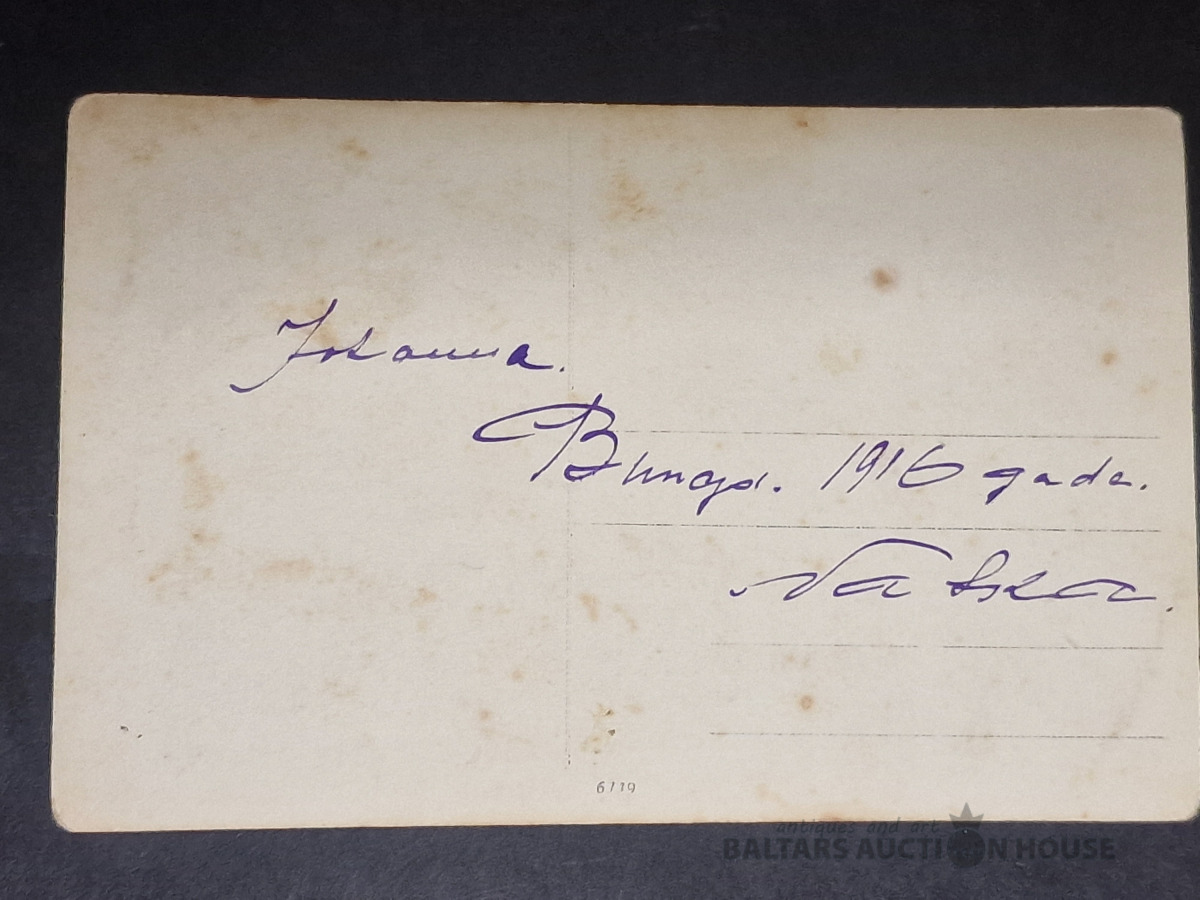 Johanna.
Bunga. 1916 gada.
6719
antiques and art
BALTARS AUCTION HOUSE